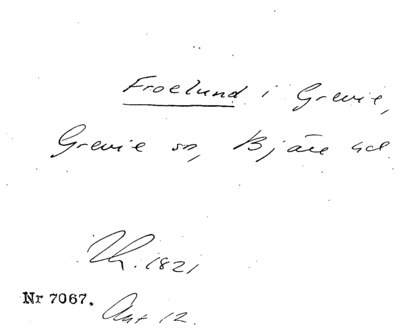 Froelund i Grevie,
Grevie sn, Bjäre hd
Lh. 1821
Nr 7067. Akt 12.